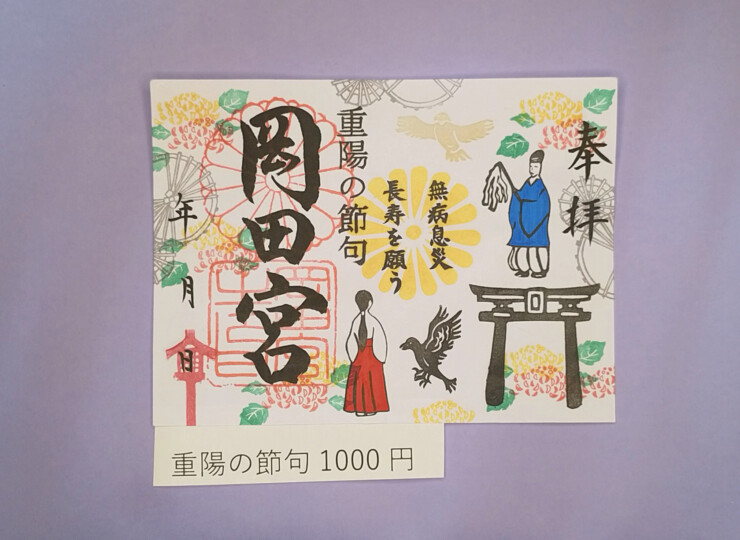 奉拝
無病息災
長寿を願う
重陽の節句
岡田宮
年 月 日
重陽の節句 1000 円